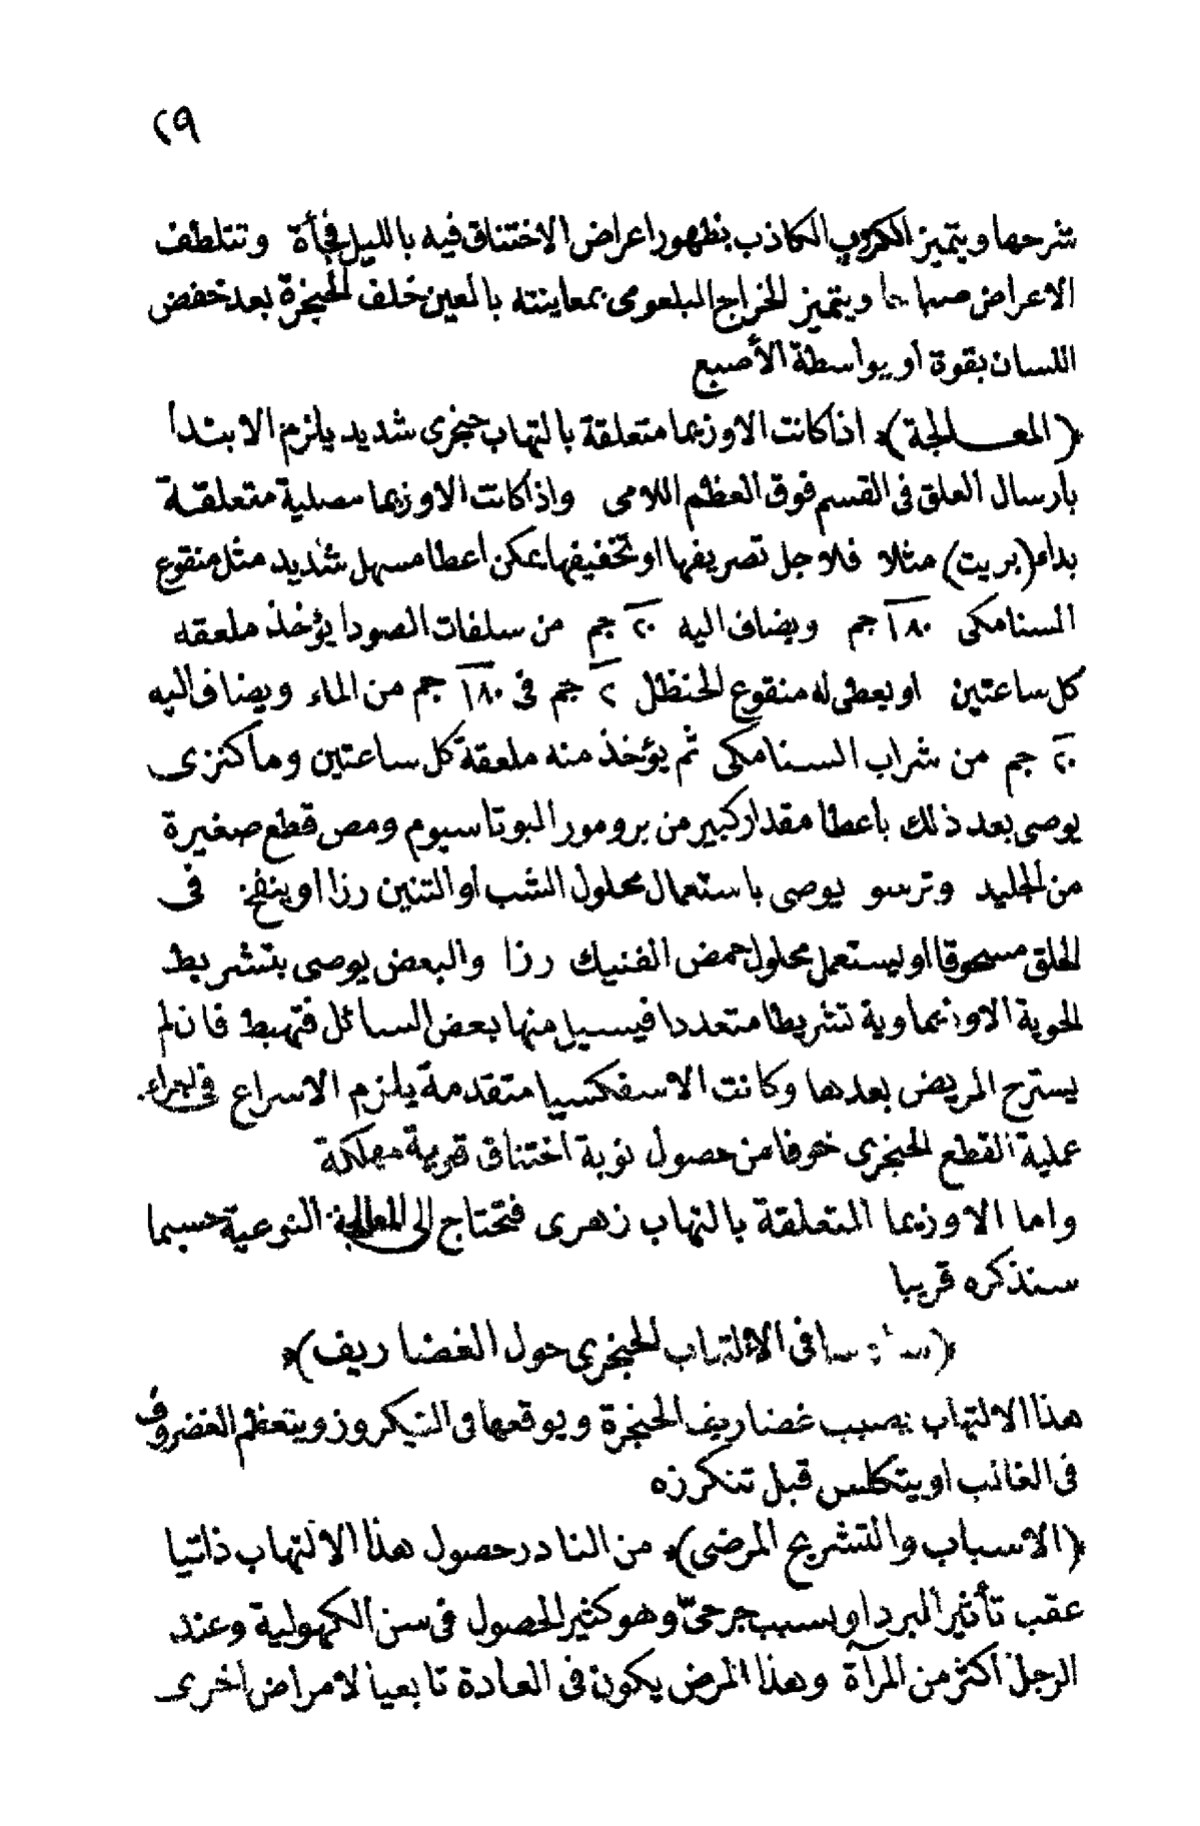 ٢٩
شرحها ويتميز الكروب الكاذب بظهور اعراض الاختناق فيه بالليل فجأة وتتلطف
الاعراض صباحا ويتميز الخراج البلعومى بمعاينته بالعين خلف الحنجرة بعد خفض
اللسان بقوة أو بواسطة الأصبع
﴿المعـــالجة﴾ اذا كانت الاوزيما متعلقة بالتهاب حنجرى شديد يلزم الابتدا
بارسال العلق فى القسم فوق العظم اللامى واذا كانت الاوزيما مصلية متعلقة
بداء (بريت) مثلا فلاجل تصريفها او تخفيفها يمكن اعطا مسهل شديد مثل منقوع
السنامكى ١٨٠ جم ويضاف اليه ٢٠ جم من سلفات الصودا يؤخذ ملعقه
كل ساعتين او يعطى له منقوع الحنظل ٢ جم فى ١٨٠ جم من الماء ويضاف اليه
٢٠ جم من شراب السنامكى ثم يؤخذ منه ملعقة كل ساعتين وماكنزى
يوصى بعد ذلك باعطا مقدار كبير من برومور البوتاسيوم ومص قطع صغيرة
من الجليد وترسو يوصى باستعمال محلول الشب أو التنين رزا او ينفخ فى
الحلق مسحوقا او يستعمل محلول حمض الفنيك رزا والبعض يوصى بتشريط
الحوية الاوزيماوية تشريطا متعددا فيسيل منها بعض السائل فتهبط فان لم
يسترح المريض بعدها وكانت الاسفكسيا متقدمة يلزم الاسراع فى اجراء
عملية القطع الحنجرى خوفا من حصول نوبة اختناق قريبة مهلكة
واما الاوزيما المتعلقة بالتهاب زهرى فتحتاج الى المعالجة النوعية حسبما
سنذكره قريبا
﴿فى الالتهاب الحنجرى حول الغضاريف﴾
هذا الالتهاب يصيب غضاريف الحنجرة ويوقعها فى النيكروز ويتعظم الغضروف
فى الغالب او يتكلس قبل تنكرزه
﴿الاسباب والتشريح المرضى﴾ من النادر حصول هذا الالتهاب ذاتيا
عقب تأثير البرد او بسبب جرحىّ وهو كثير الحصول فى سن الكهولية وعند
الرجل اكثر من المرآة وهذا المرض يكون فى العادة تابعيا لامراض اخرى